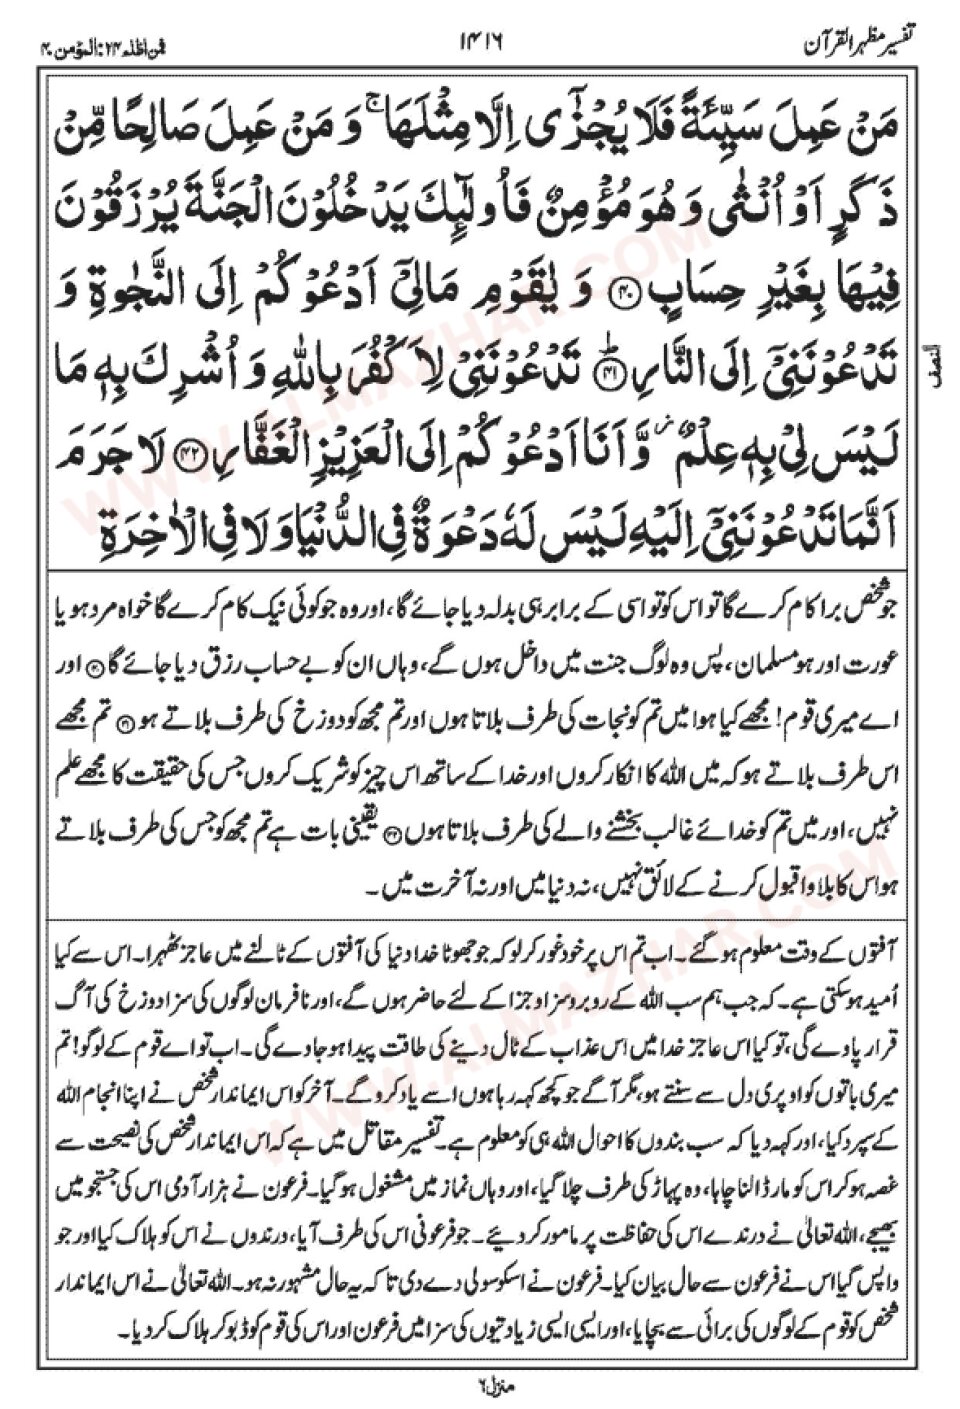 تفسیر مظہر القرآن
۱۴۱۶
فمن اظلم ۲۴: المؤمن ۴۰
مَنۡ عَمِلَ سَیِّئَۃً فَلَا یُجۡزٰۤی اِلَّا مِثۡلَہَا ۚ وَ مَنۡ عَمِلَ صَالِحًا مِّنۡ
ذَکَرٍ اَوۡ اُنۡثٰی وَ ہُوَ مُؤۡمِنٌ فَاُولٰٓئِکَ یَدۡخُلُوۡنَ الۡجَنَّۃَ یُرۡزَقُوۡنَ
فِیۡہَا بِغَیۡرِ حِسَابٍ ﴿۴۰﴾ وَ یٰقَوۡمِ مَا لِیۡۤ اَدۡعُوۡکُمۡ اِلَی النَّجٰوۃِ وَ
تَدۡعُوۡنَنِیۡۤ اِلَی النَّارِ ﴿ؕ۴۱﴾ تَدۡعُوۡنَنِیۡ لِاَکۡفُرَ بِاللّٰہِ وَ اُشۡرِکَ بِہٖ مَا
لَیۡسَ لِیۡ بِہٖ عِلۡمٌ ۫ وَّ اَنَا اَدۡعُوۡکُمۡ اِلَی الۡعَزِیۡزِ الۡغَفَّارِ ﴿۴۲﴾ لَا جَرَمَ
اَنَّمَا تَدۡعُوۡنَنِیۡۤ اِلَیۡہِ لَیۡسَ لَہٗ دَعۡوَۃٌ فِی الدُّنۡیَا وَ لَا فِی الۡاٰخِرَۃِ
النصف
جو شخص برا کام کرے گا تو اس کو تو اسی کے برابر ہی بدلہ دیا جائے گا، اور وہ جو کوئی نیک کام کرے گا خواہ مرد ہو یا
عورت اور ہو مسلمان، پس وہ لوگ جنت میں داخل ہوں گے، وہاں ان کو بے حساب رزق دیا جائے گا ﴿۴۰﴾ اور
اے میری قوم! مجھے کیا ہوا میں تم کو نجات کی طرف بلاتا ہوں اور تم مجھ کو دوزخ کی طرف بلاتے ہو ﴿۴۱﴾ تم مجھے
اس طرف بلاتے ہو کہ میں اللہ کا انکار کروں اور خدا کے ساتھ اس چیز کو شریک کروں جس کی حقیقت کا مجھے علم
نہیں، اور میں تم کو خدائے غالب بخشنے والے کی طرف بلاتا ہوں ﴿۴۲﴾ یقینی بات ہے تم مجھ کو جس کی طرف بلاتے
ہو اس کا بلاوا قبول کرنے کے لائق نہیں، نہ دنیا میں اور نہ آخرت میں۔
آفتوں کے وقت معلوم ہو گئے۔ اب تم اس پر خود غور کر لو کہ جو جھوٹا خدا دنیا کی آفتوں کے ٹالنے میں عاجز ٹھہرا۔ اس سے کیا
اُمید ہو سکتی ہے۔ کہ جب ہم سب اللہ کے روبرو سزا و جزا کے لئے حاضر ہوں گے، اور نافرمان لوگوں کی سزا دوزخ کی آگ
قرار پاوے گی، تو کیا اس عاجز خدا میں اس عذاب کے ٹال دینے کی طاقت پیدا ہو جاوے گی۔ اب تو اے قوم کے لوگو! تم
میری باتوں کو اوپری دل سے سنتے ہو، مگر آگے جو کچھ کہہ رہا ہوں اسے یاد کرو گے۔ آخر کو اس ایماندار شخص نے اپنا انجام اللہ
کے سپرد کیا، اور کہہ دیا کہ سب بندوں کا احوال اللہ ہی کو معلوم ہے۔ تفسیر مقاتل میں ہے کہ اس ایماندار شخص کی نصیحت سے
غصہ ہو کر اس کو مار ڈالنا چاہا، وہ پہاڑ کی طرف چلا گیا، اور وہاں نماز میں مشغول ہو گیا۔ فرعون نے ہزار آدمی اس کی جستجو میں
بھیجے، اللہ تعالیٰ نے درندے اس کی حفاظت پر مامور کر دیئے۔ جو فرعونی اس کی طرف آیا، درندوں نے اس کو ہلاک کیا اور جو
واپس گیا اس نے فرعون سے حال بیان کیا۔ فرعون نے اسکو سولی دے دی تاکہ یہ حال مشہور نہ ہو۔ اللہ تعالیٰ نے اس ایماندار
شخص کو قوم کے لوگوں کی برائی سے بچایا، اور ایسی ایسی زیادتیوں کی سزا میں فرعون اور اس کی قوم کو ڈبو کر ہلاک کر دیا۔
منزل ۶
WWW.ALMAZHAR.COM
WWW.ALMAZHAR.COM